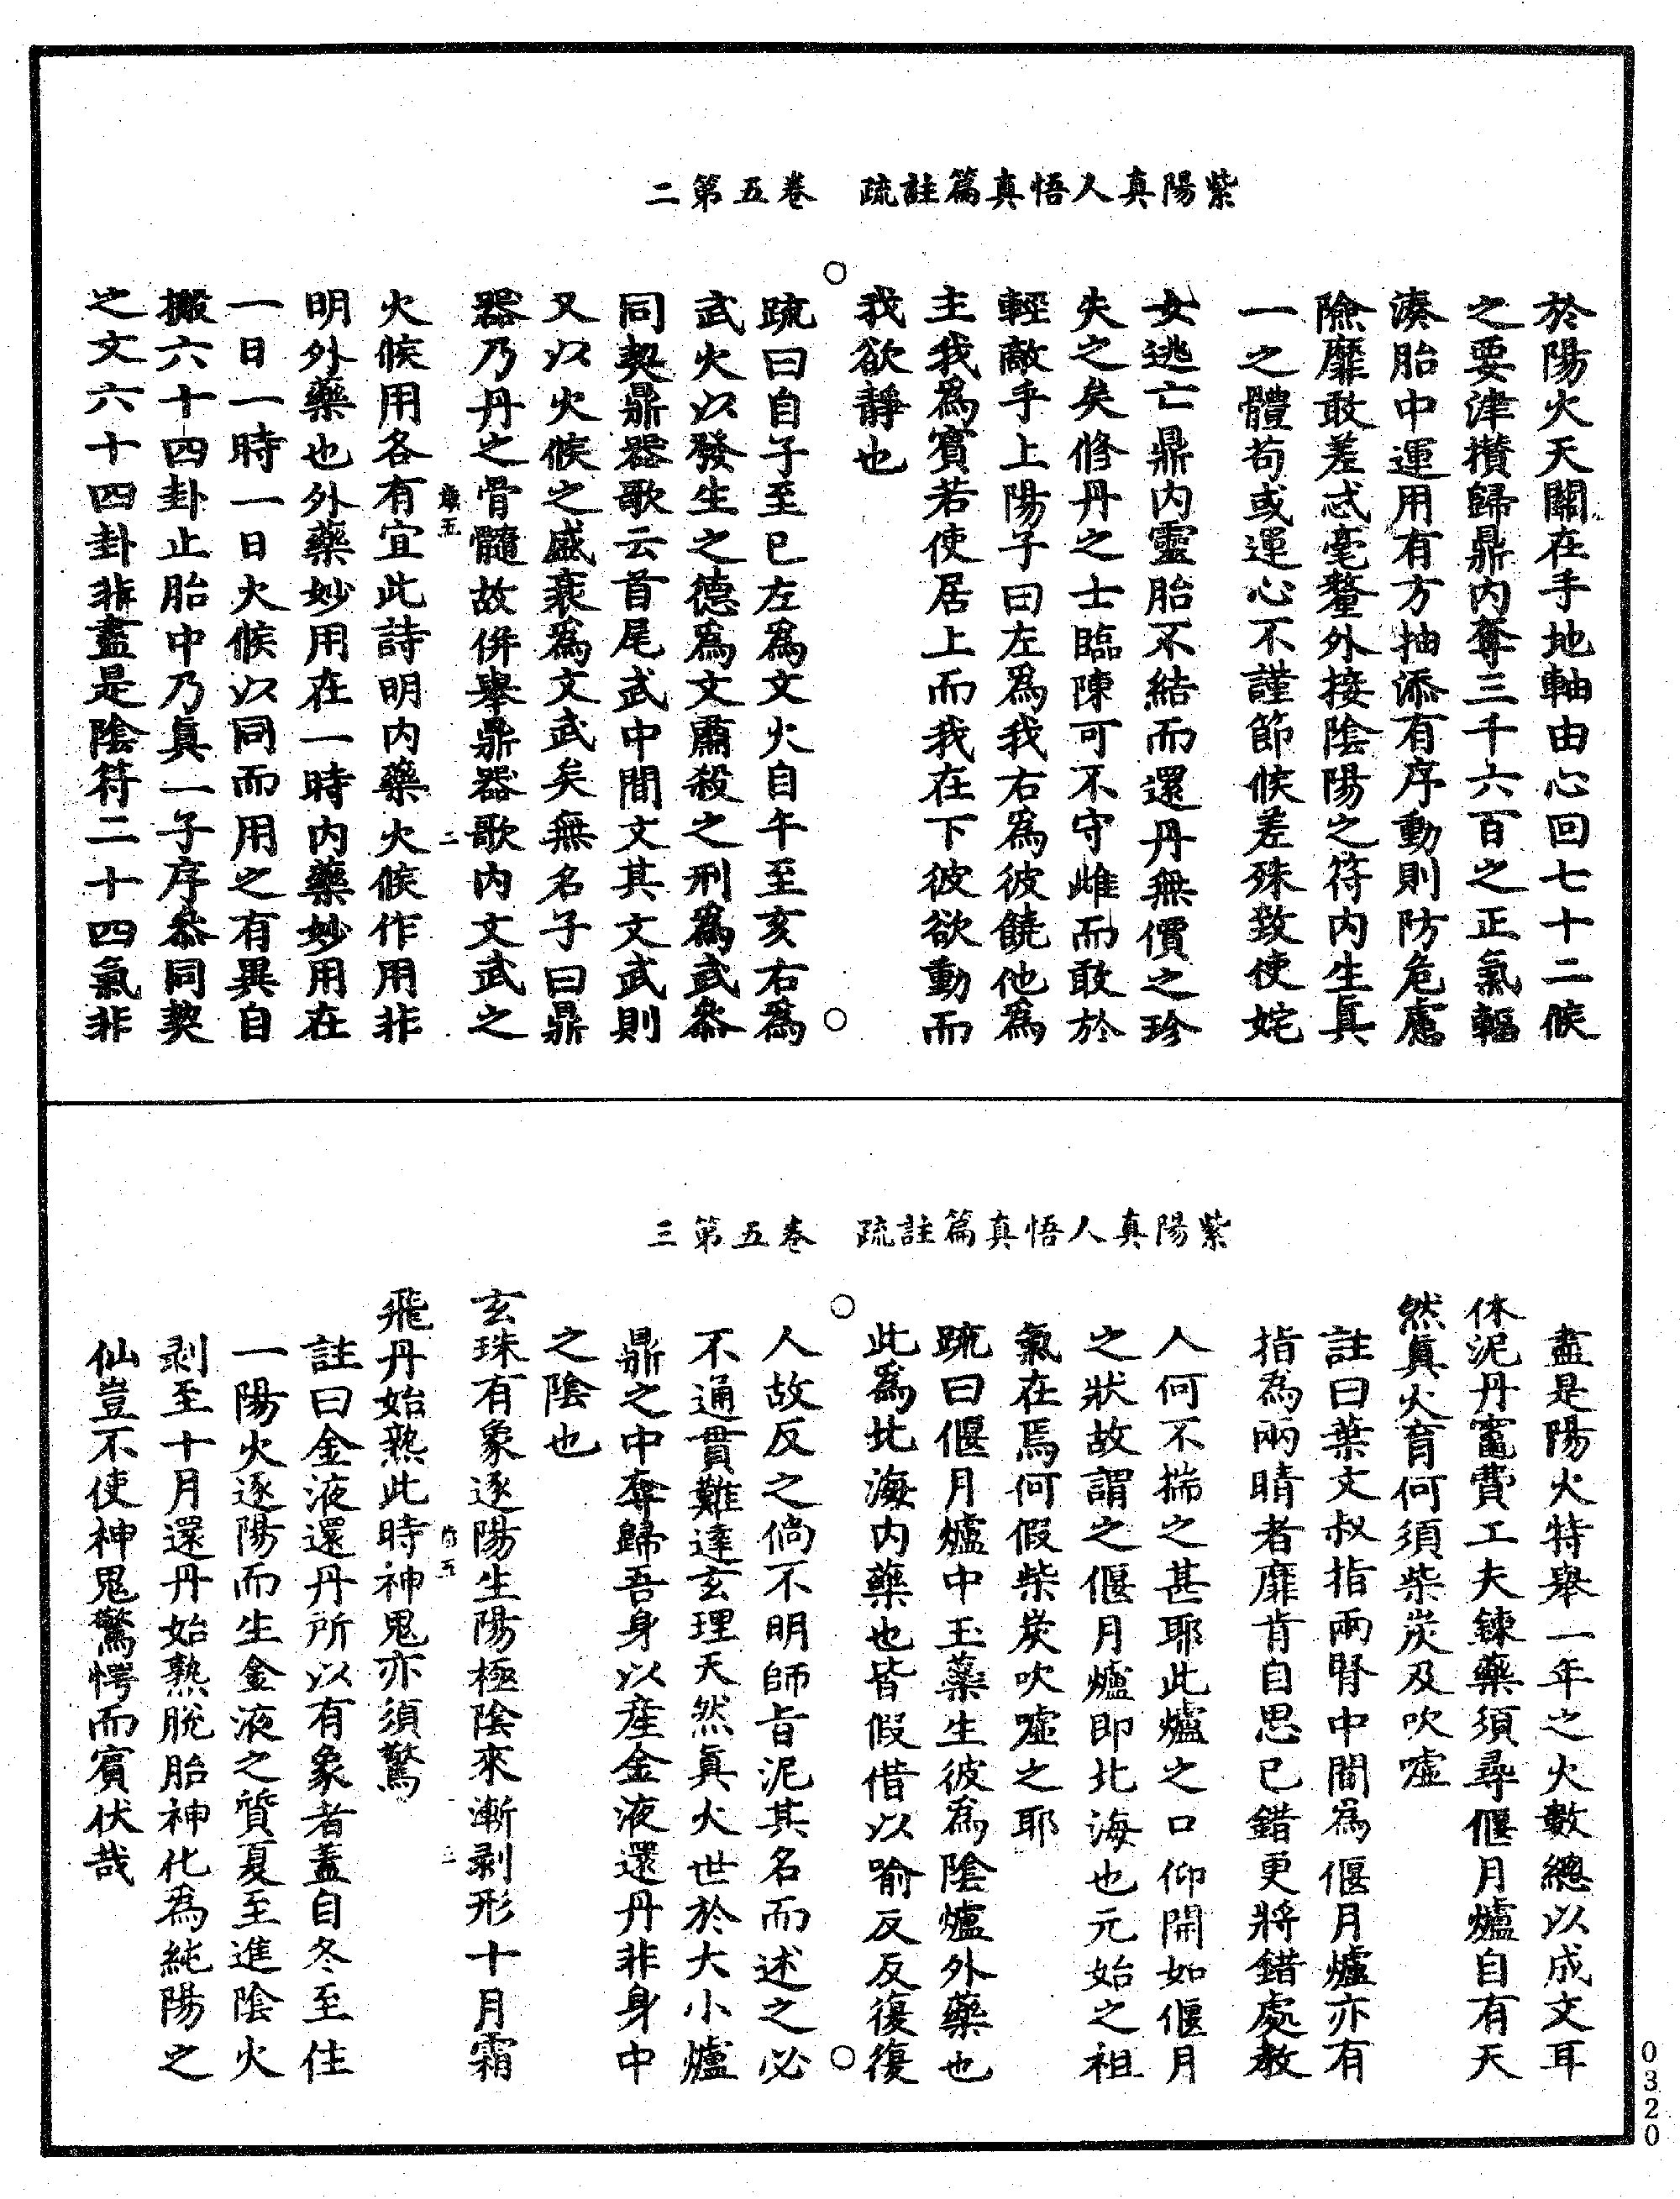 紫陽真人悟真篇註疏　卷五第二
於陽火天關在手地軸由心回七十二候
之要津攢歸鼎內奪三千六百之正氣輻
湊胎中運用有方抽添有序動則防危慮
險靡敢差忒毫釐外接陰陽之符內生真
一之體苟或運心不謹節候差殊致使姹
女逃亡鼎內靈胎不結而還丹無價之珍
失之矣修丹之士臨陳可不守雌而敢於
輕敵手上陽子曰左為我右為彼饒他為
主我為賓若使居上而我在下彼欲動而
我欲靜也
疏曰自子至巳左為文火自午至亥右為
武火以發生之德為文肅殺之刑為武叅
同契鼎器歌云首尾武中間文其文武則
又以火候之盛衰為文武矣無名子曰鼎
器乃丹之骨髓故併舉鼎器歌內文武之
火候用各有宜此詩明內藥火候作用非
明外藥也外藥妙用在一時內藥妙用在
一日一時一日火候以同而用之有異自
搬六十四卦止胎中乃真一子序叅同契
之文六十四卦非盡是陰符二十四氣非
紫陽真人悟真篇註疏　卷五第三
盡是陽火特舉一年之火數總以成文耳
休泥丹竈費工夫鍊藥須尋偃月爐自有天
然真火育何須柴炭及吹噓
註曰葉文叔指兩腎中間為偃月爐亦有
指為兩睛者靡肯自思已錯更將錯處教
人何不揣之甚耶此爐之口仰開如偃月
之狀故謂之偃月爐即北海也元始之祖
氣在焉何假柴炭吹噓之耶
疏曰偃月爐中玉蘂生彼為陰爐外藥也
此為北海內藥也皆假借以喻反反復復
人故反之倘不明師旨泥其名而述之必
不通貫難達玄理天然真火世於大小爐
鼎之中奪歸吾身以產金液還丹非身中
之陰也
玄珠有象逐陽生陽極陰來漸剥形十月霜
飛丹始熟此時神鬼亦須驚
註曰金液還丹所以有象者蓋自冬至住
一陽火逐陽而生金液之質夏至進陰火
剥至十月還丹始熟脫胎神化為純陽之
仙豈不使神鬼驚愕而賓伏哉
0320